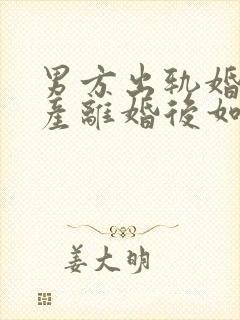 男方出轨婚
產離婚後如
姜大明